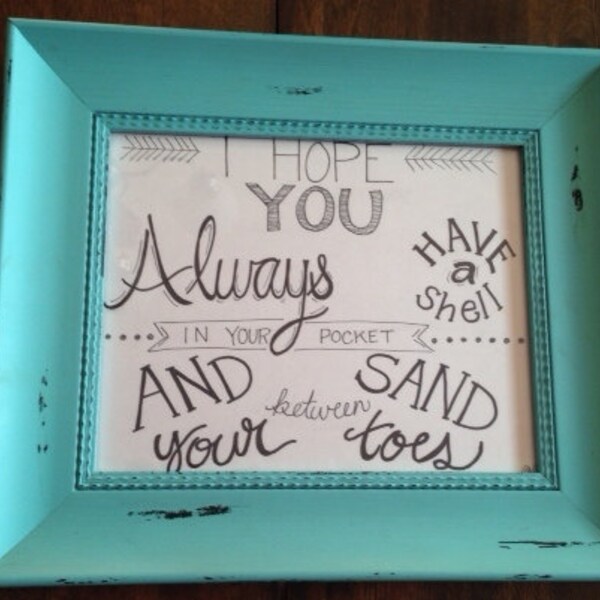 I HOPE
YOU
Always
HAVE
a
Shell
IN YOUR POCKET
AND SAND
between
your toes